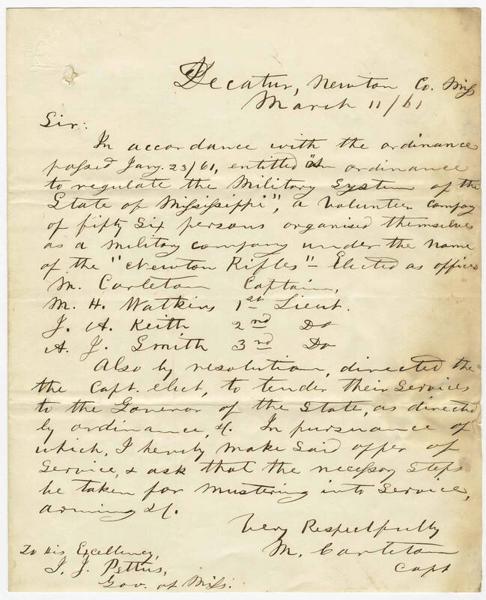 Decatur, Newton Co. Miss
March 11/61
Sir:
In accordance with the ordinance
passed Jany. 23/61, entitled "An ordinance
to regulate the Military System of the
State of Mississippi", a volunteer company
of fifty six persons organised themselves
as a military company under the name
of the "Newton Rifles" - Elected as officers
M. Carleton Captain,
M. H. Watkins 1st Lieut.
J. A. Keith 2nd Do
A. J. Smith 3rd Do
Also by resolution, directed the
the Capt. elect, to tender their services
to the Govenor of the State, as directed
by ordinance, &c. In pursuance of
which, I hereby make said offer of
service, & ask that the necessary steps
be taken for mustering into service,
arming &c.
Very Respectfully
M. Carleton
Capt
To His Excellency,
J. J. Pettus,
Gov. of Miss.